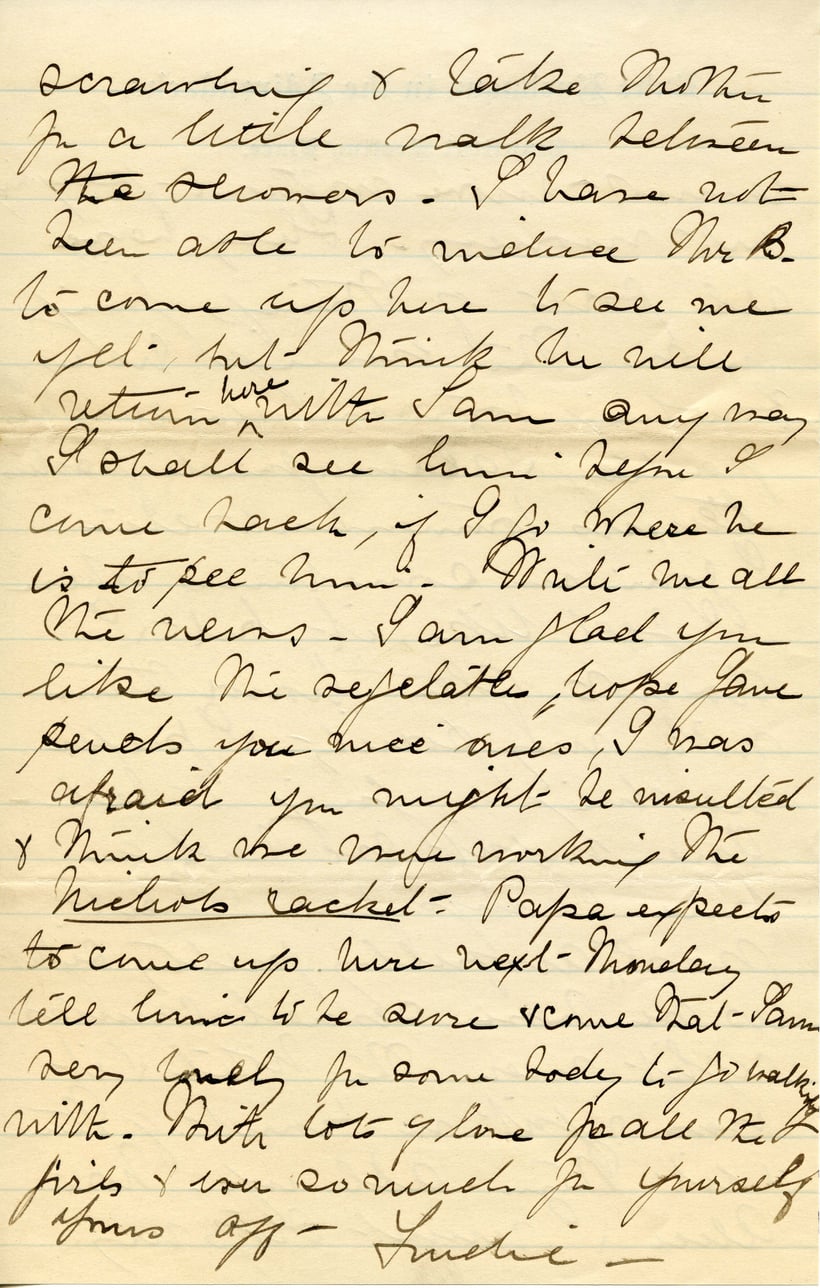 scrawling & take Mother
for a little walk between
the showers. I have not
been able to induce Mr B.
to come up here to see me
yet, but think he will
return here with Sam any way
I shall see him before I
come back, if I go where he
is to see him. Write me all
the news – I am glad you
like the vegetables, hope Gave
sends you nice ones, I was
afraid you might be insulted
& think we were working the
Nichols racket – Papa expects
to come up here next Monday
tell him to be sure & come that I am
very lonely for some body to go walking
with. With lots of love for all the
girls & ever so much for yourself
Yours aff –